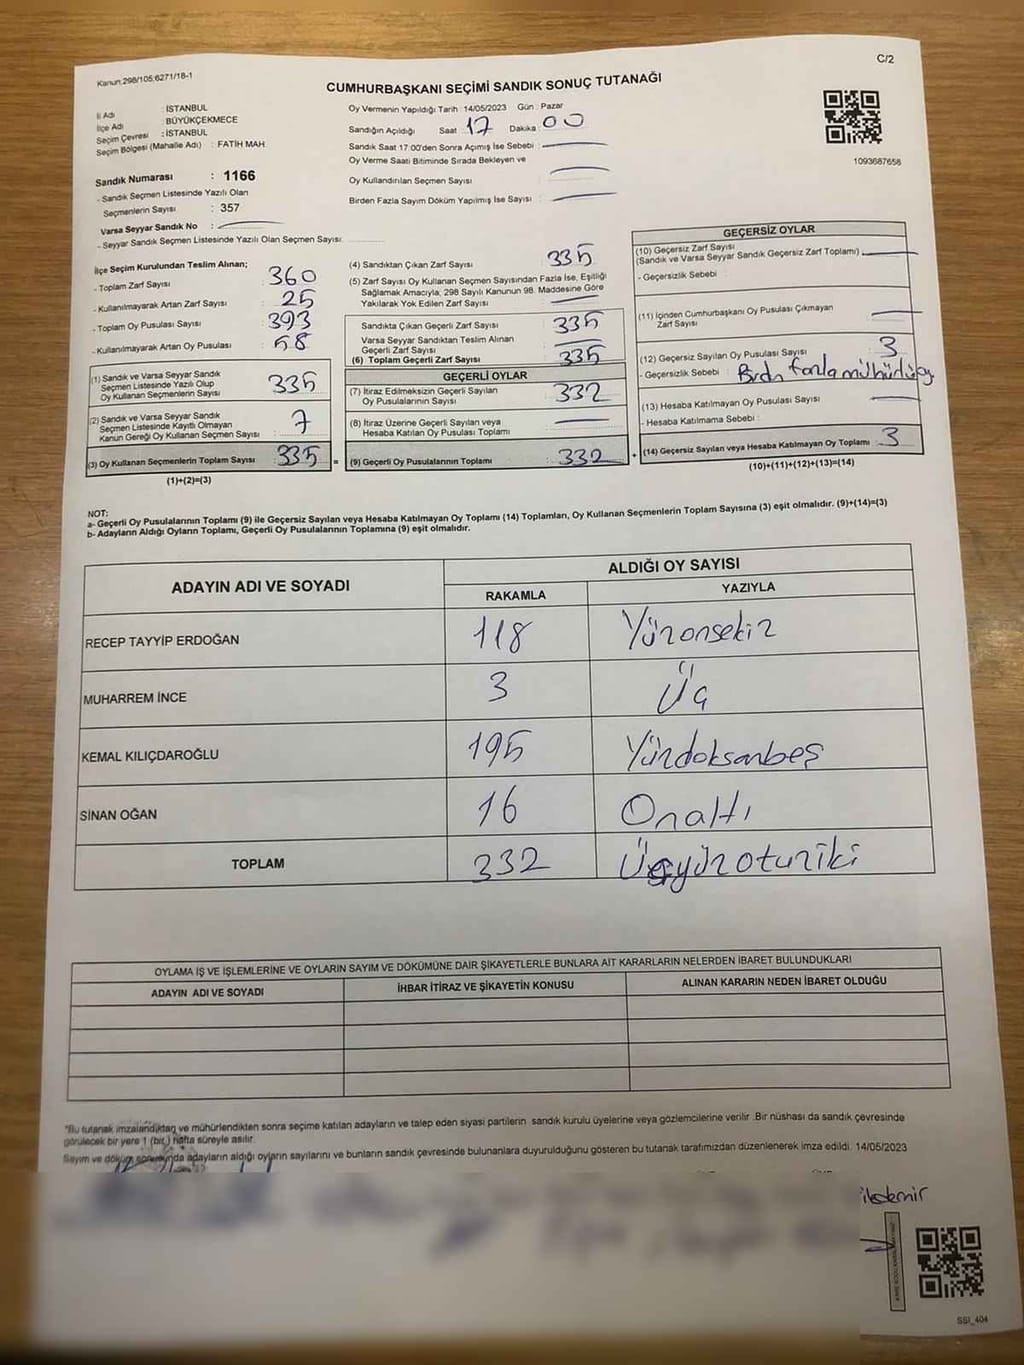 Kanun.298/105;6271/18-1
C/2
CUMHURBAŞKANI SEÇİMİ SANDIK SONUÇ TUTANAĞI
İl Adı : İSTANBUL
İlçe Adı : BÜYÜKÇEKMECE
Seçim Çevresi : İSTANBUL
Seçim Bölgesi (Mahalle Adı) : FATİH MAH.
Sandık Numarası : 1166
- Sandık Seçmen Listesinde Yazılı Olan
Seçmenlerin Sayısı : 357
Varsa Seyyar Sandık No :
- Seyyar Sandık Seçmen Listesinde Yazılı Olan Seçmen Sayısı:
Oy Vermenin Yapıldığı Tarih : 14/05/2023 Gün : Pazar
Sandığın Açıldığı Saat : 17 Dakika : 00
Sandık Saat 17:00'den Sonra Açımış İse Sebebi :
Oy Verme Saati Bitiminde Sırada Bekleyen ve
Oy Kullandırılan Seçmen Sayısı :
Birden Fazla Sayım Döküm Yapılmış İse Sayısı :
1093687658
İlçe Seçim Kurulundan Teslim Alınan;
- Toplam Zarf Sayısı : 360
- Kullanılmayarak Artan Zarf Sayısı : 25
- Toplam Oy Pusulası Sayısı : 393
- Kullanılmayarak Artan Oy Pusulası : 58
(1) Sandık ve Varsa Seyyar Sandık
Seçmen Listesinde Yazılı Olup
Oy Kullanan Seçmenlerin Sayısı : 335
(2) Sandık ve Varsa Seyyar Sandık
Seçmen Listesinde Kayıtlı Olmayan
Kanun Gereği Oy Kullanan Seçmen Sayısı : 7
(3) Oy Kullanan Seçmenlerin Toplam Sayısı : 335 =
(1)+(2)=(3)
(4) Sandıktan Çıkan Zarf Sayısı : 335
(5) Zarf Sayısı Oy Kullanan Seçmen Sayısından Fazla İse, Eşitliği
Sağlamak Amacıyla, 298 Sayılı Kanunun 98. Maddesine Göre
Yakılarak Yok Edilen Zarf Sayısı :
Sandıkta Çıkan Geçerli Zarf Sayısı : 335
Varsa Seyyar Sandıktan Teslim Alınan
Geçerli Zarf Sayısı :
(6) Toplam Geçerli Zarf Sayısı : 335
GEÇERLİ OYLAR
(7) İtiraz Edilmeksizin Geçerli Sayılan
Oy Pusulalarının Sayısı : 332
(8) İtiraz Üzerine Geçerli Sayılan veya
Hesaba Katılan Oy Pusulası Toplamı :
(9) Geçerli Oy Pusulalarının Toplamı : 332 +
GEÇERSİZ OYLAR
(10) Geçersiz Zarf Sayısı
(Sandık ve Varsa Seyyar Sandık Geçersiz Zarf Toplamı)
- Geçersizlik Sebebi :
(11) İçinden Cumhurbaşkanı Oy Pusulası Çıkmayan
Zarf Sayısı :
(12) Geçersiz Sayılan Oy Pusulası Sayısı : 3
- Geçersizlik Sebebi : Birden fazla mühürlü oy
(13) Hesaba Katılmayan Oy Pusulası Sayısı :
- Hesaba Katılmama Sebebi :
(14) Geçersiz Sayılan veya Hesaba Katılmayan Oy Toplamı : 3
(10)+(11)+(12)+(13)=(14)
NOT:
a- Geçerli Oy Pusulalarının Toplamı (9) ile Geçersiz Sayılan veya Hesaba Katılmayan Oy Toplamı (14) Toplamları, Oy Kullanan Seçmenlerin Toplam Sayısına (3) eşit olmalıdır. (9)+(14)=(3)
b- Adayların Aldığı Oyların Toplamı, Geçerli Oy Pusulalarının Toplamına (9) eşit olmalıdır.
ADAYIN ADI VE SOYADI ALDIĞI OY SAYISI
RAKAMLA YAZIYLA
RECEP TAYYİP ERDOĞAN 118 Yüzonsekiz
MUHARREM İNCE 3 Üç
KEMAL KILIÇDAROĞLU 195 Yüzdoksanbeş
SİNAN OĞAN 16 Onaltı
TOPLAM 332 Üçyüzotuziki
OYLAMA İŞ VE İŞLEMLERİNE VE OYLARIN SAYIM VE DÖKÜMÜNE DAİR ŞİKAYETLERLE BUNLARA AİT KARARLARIN NELERDEN İBARET BULUNDUKLARI
ADAYIN ADI VE SOYADI İHBAR İTİRAZ VE ŞİKAYETİN KONUSU ALINAN KARARIN NEDEN İBARET OLDUĞU
*Bu tutanak imzalandıktan ve mühürlendikten sonra seçime katılan adayların ve talep eden siyasi partilerin sandık kurulu üyelerine veya gözlemcilerine verilir. Bir nüshası da sandık çevresinde
görülecek bir yere 1 (bir) hafta süreyle asılır.
Sayım ve döküm sonucunda adayların aldığı oyların sayılarını ve bunların sandık çevresinde bulunanlara duyurulduğunu gösteren bu tutanak tarafımızdan düzenlenerek imza edildi. 14/05/2023
SSI_404